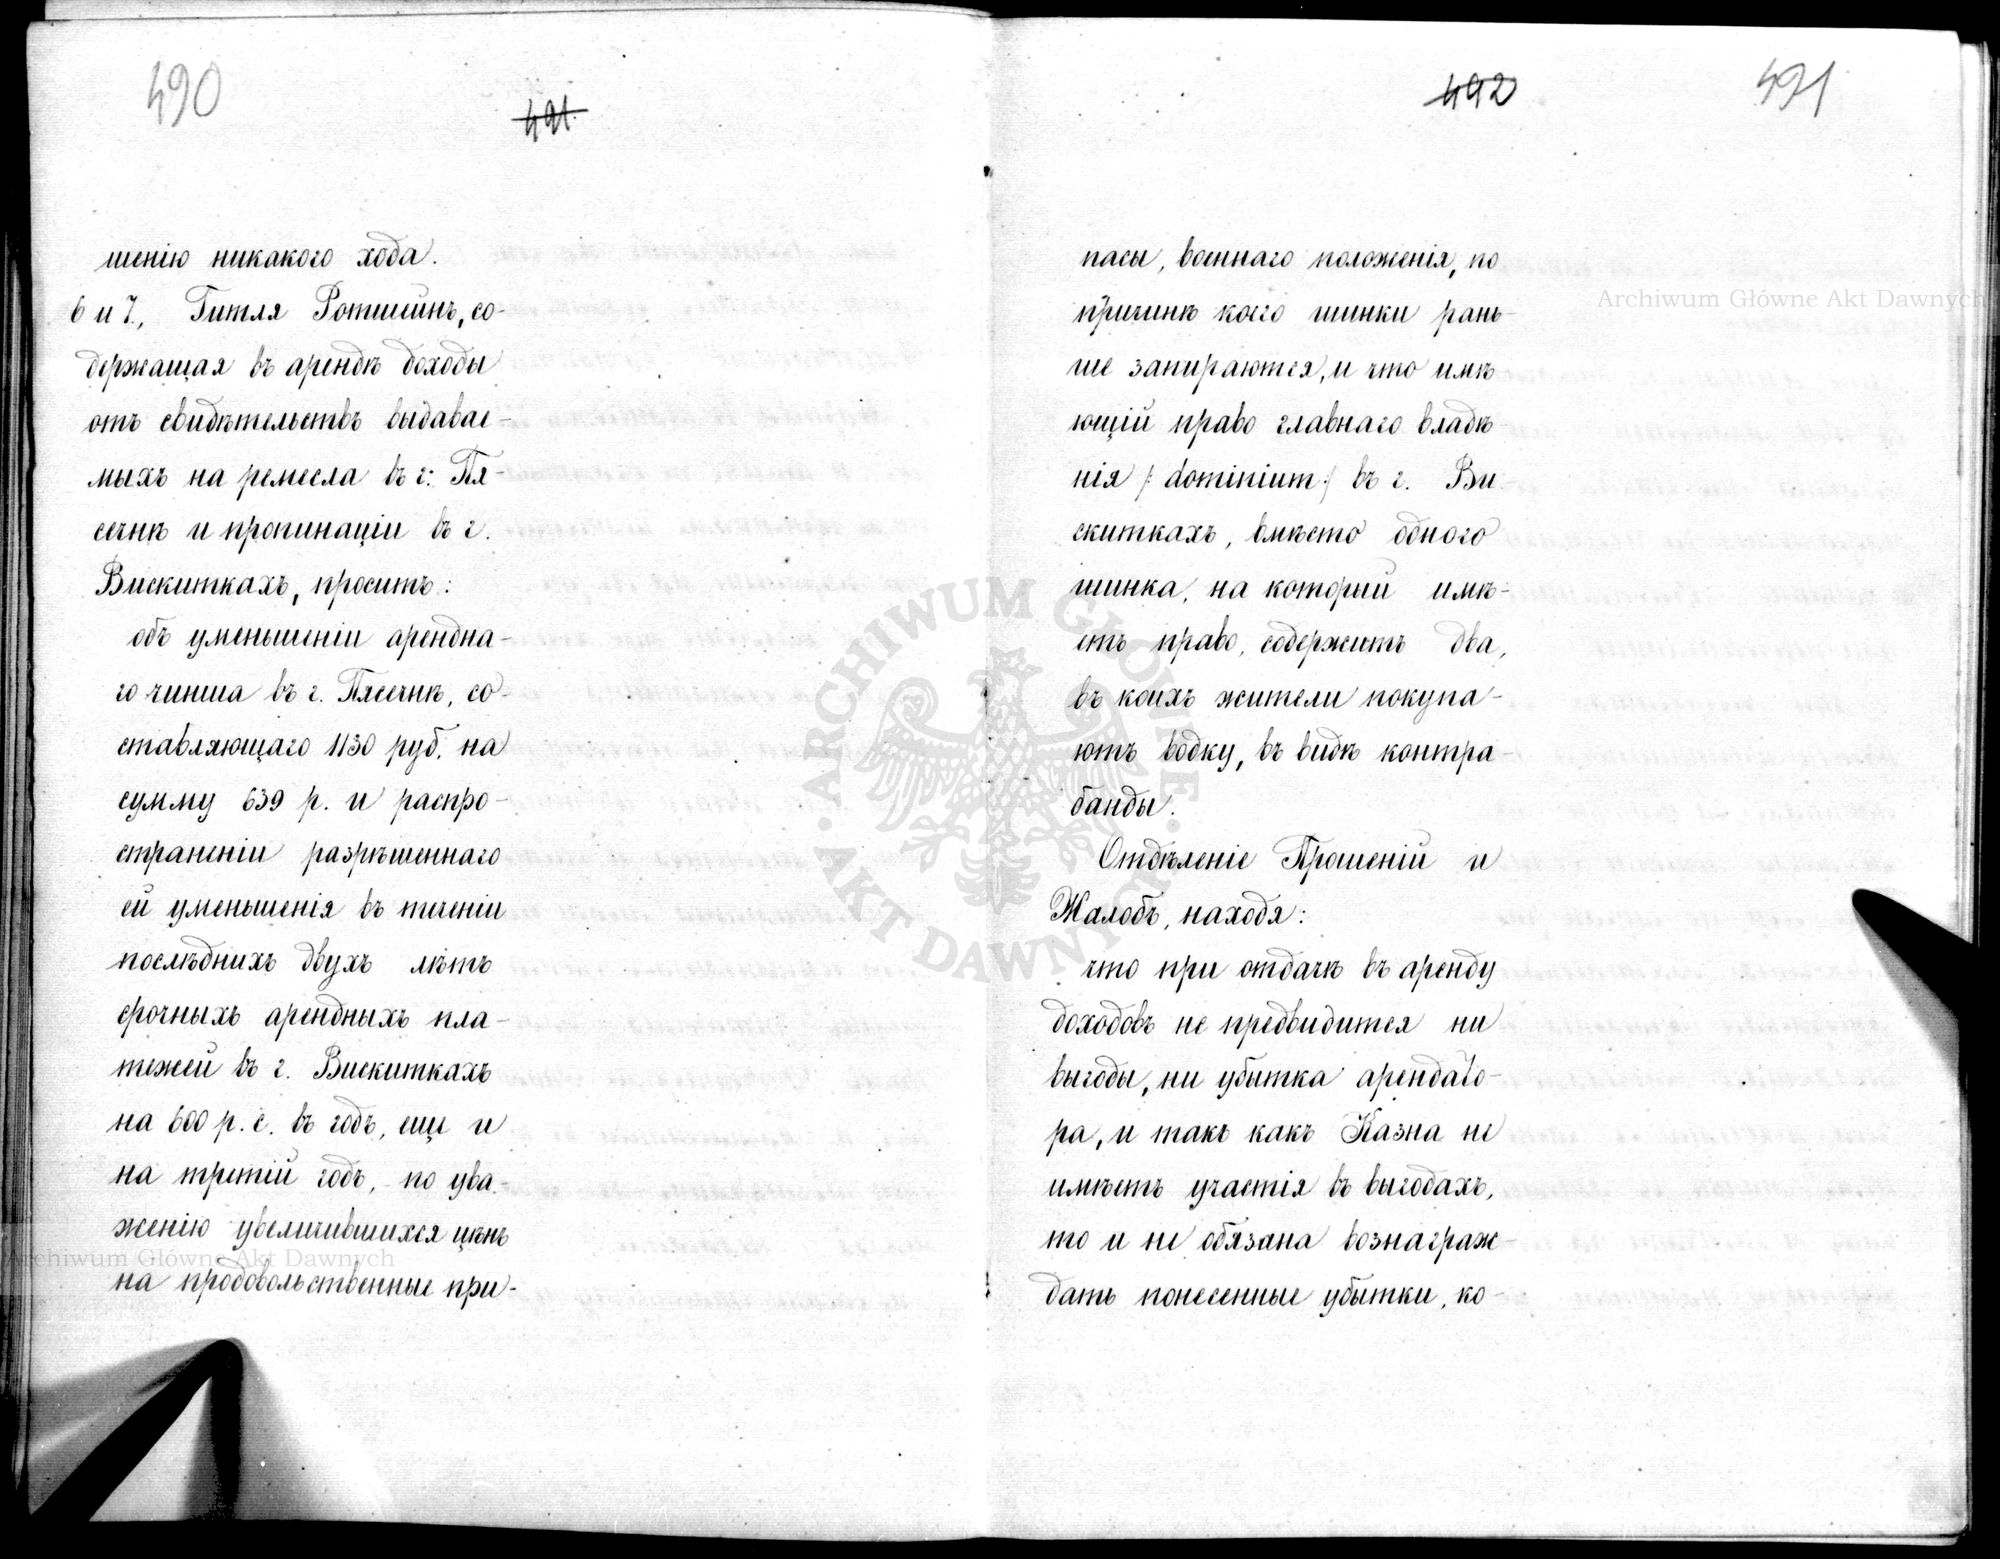 490
491.
шенію никакого хода.
6 и 7, Гитля Ротшейнъ, со-
держащая въ арендѣ доходы
отъ свидѣтельствъ выдавае-
мыхъ на ремесла въ г: Пя-
сечнѣ и пропинаціи въ г.
Вискиткахъ, проситъ:
объ уменьшеніи арендна-
го чинша въ г. Пясечнѣ, со-
ставляющаго 1130 руб. на
сумму 639 р. и распро-
страненіи разрѣшеннаго
ей уменьшенія въ теченіи
послѣднихъ двухъ лѣтъ
срочныхъ арендныхъ пла-
тежей въ г. Вискиткахъ
на 600 р. с. въ годъ, еще и
на третій годъ, по ува-
женію увеличившихся цѣнъ
на продовольственные при-
492
491
пасы, военнаго положенія, по
причинѣ коего шинки рань-
ше запираются, и что имѣ
ющій право главнаго владѣ
нія /: dominium :/ въ г. Ви-
скиткахъ, вмѣсто одного
шинка, на который имѣ-
етъ право, содержитъ два,
въ коихъ жители покупа-
ютъ водку, въ видѣ контра-
банды.
Отдѣленіе Прошеній и
Жалобъ, находя:
что при отдачѣ въ аренду
доходовъ не предвидится ни
выгоды, ни убытка арендато-
ра, и такъ какъ Казна не
имѣетъ участія въ выгодахъ,
то и не обязана вознаграж-
дать понесенные убытки, ко-
Archiwum Główne Akt Dawnych
Archiwum Główne Akt Dawnych
ARCHIWUM GŁÓWNE
AKT DAWNYCH